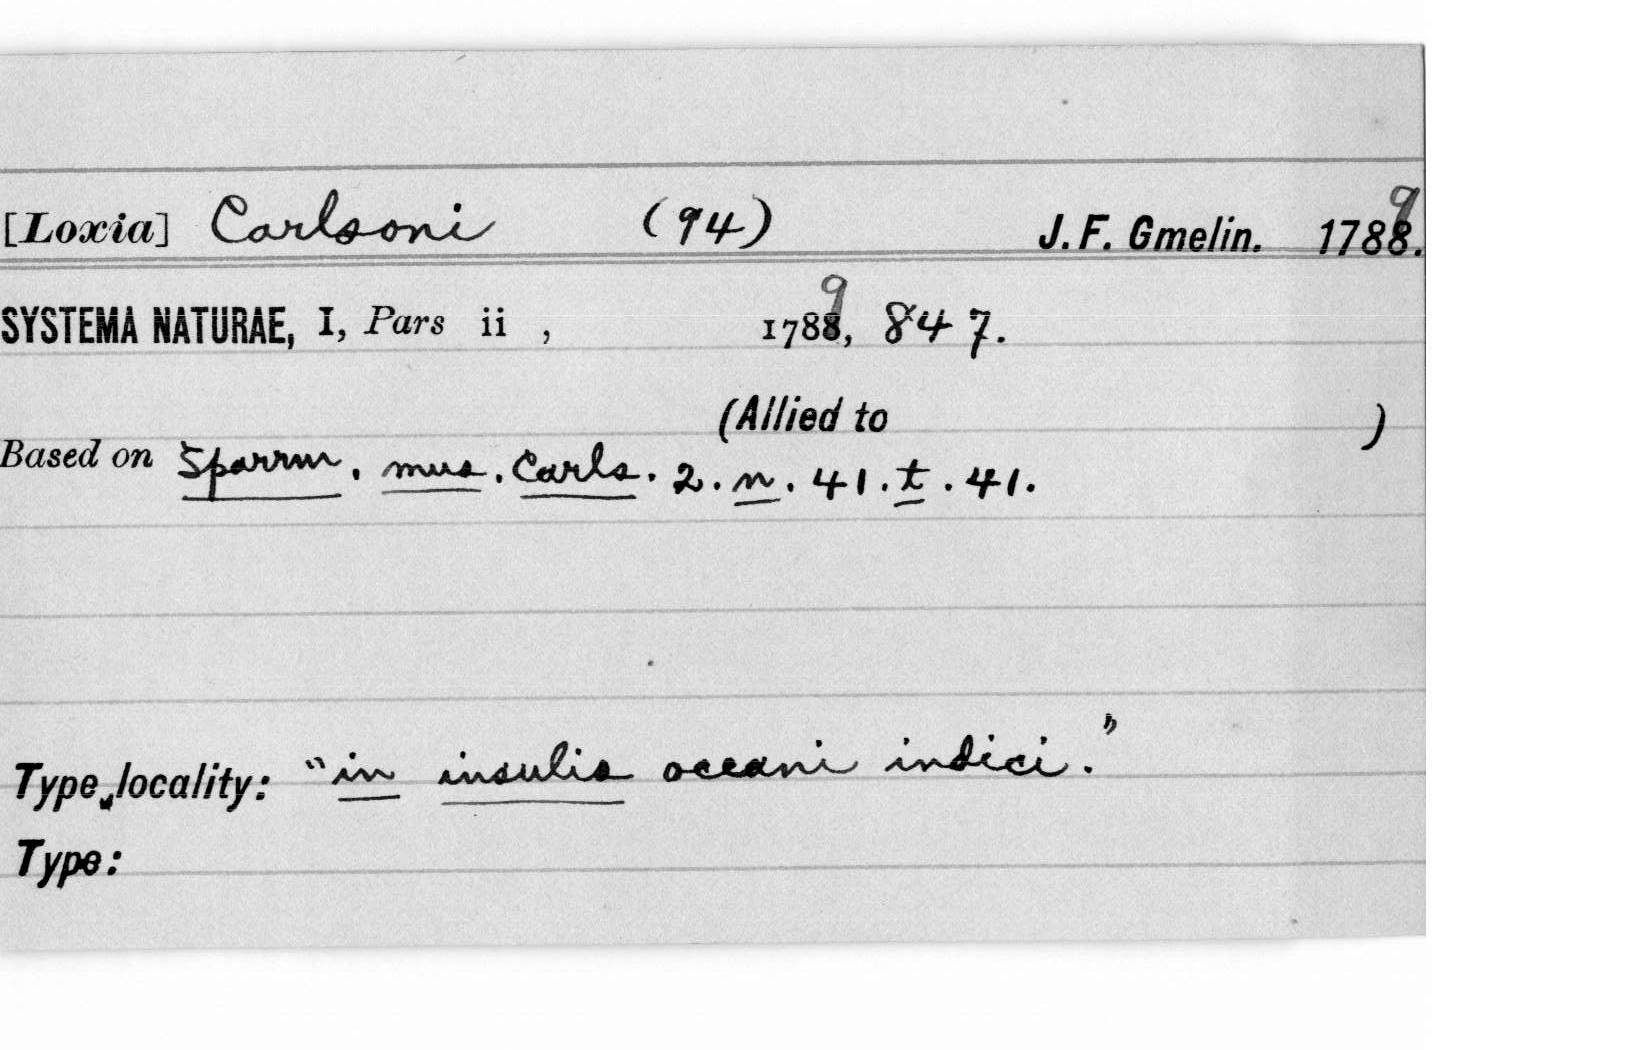 [Loxia] Carlsoni (94) J. F. Gmelin. 1789.
SYSTEMA NATURAE, I, Pars ii , 1789, 847.
(Allied to )
Based on Sparrm. mus. Carls. 2. n. 41. t. 41.
Type locality: "in insulis oceani indici."
Type: